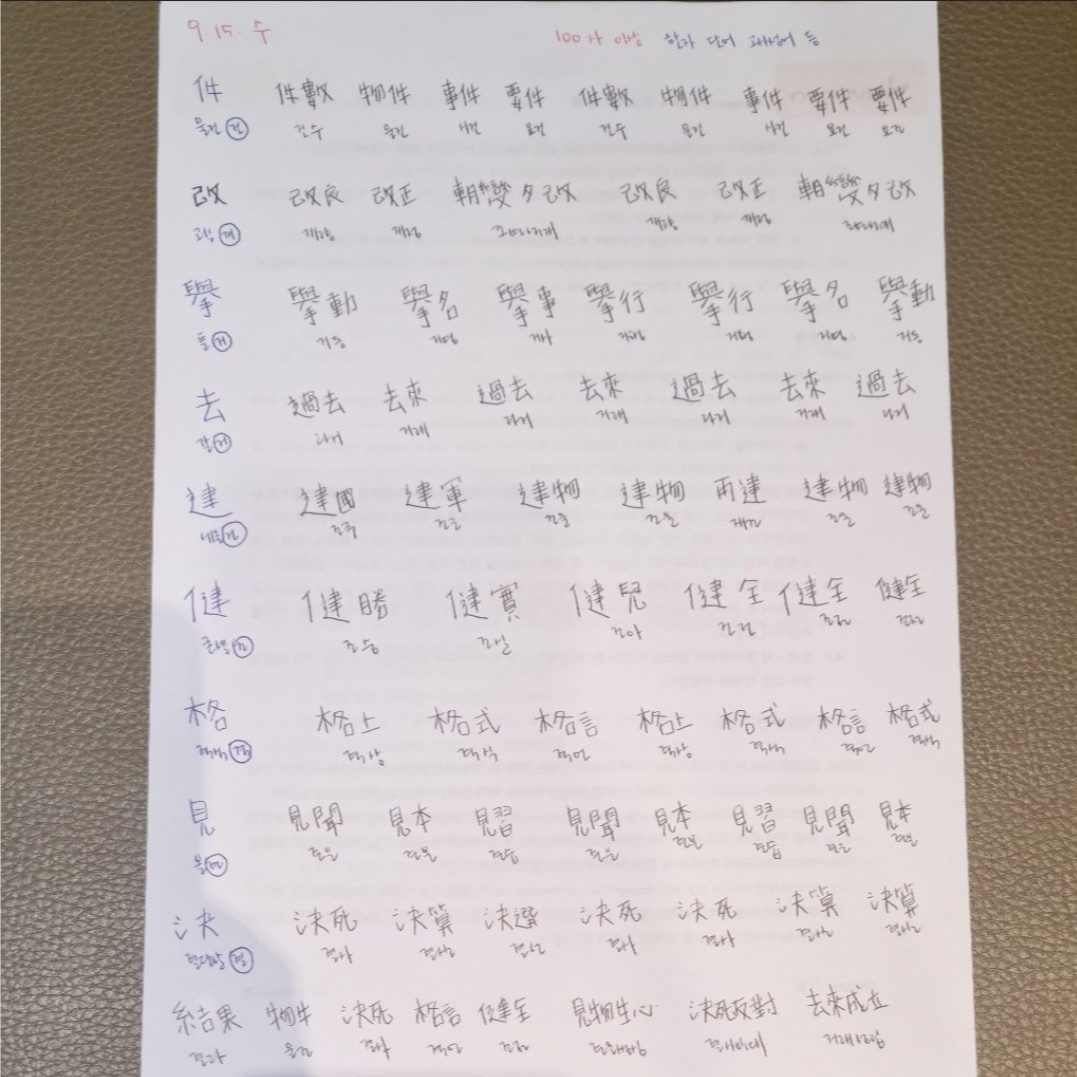 9. 15. 수
100자 이상 한자 단어 고사성어 등
件 件數 物件 事件 要件 件數 物件 事件 要件 要件
물건 건 건수 물건 사건 요건 건수 물건 사건 요건 요건
改 改良 改正 朝變夕改 改良 改正 朝變夕改
고칠 개 개량 개정 조변석개 개량 개정 조변석개
擧 擧動 擧名 擧事 擧行 擧行 擧名 擧動
들 거 거동 거명 거사 거행 거행 거명 거동
去 過去 去來 過去 去來 過去 去來 過去
갈 거 과거 거래 과거 거래 과거 거래 과거
建 建國 建軍 建物 建物 再建 建物 建物
세울 건 건국 건군 건물 건물 재건 건물 건물
健 健勝 健實 健兒 健全 健全 健全
굳셀 건 건승 건실 건아 건전 건전 건전
格 格上 格式 格言 格上 格式 格言 格式
격식 격 격상 격식 격언 격상 격식 격언 격식
見 見聞 見本 見習 見聞 見本 見習 見聞 見本
볼 견 견문 견본 견습 견문 견본 견습 견문 견본
決 決死 決算 決選 決死 決死 決算 決算
결단할 결 결사 결산 결선 결사 결사 결산 결산
結果 物件 決死 格言 健全 見物生心 決死反對 去來成立
결과 물건 결사 격언 건전 견물생심 결사반대 거래성립